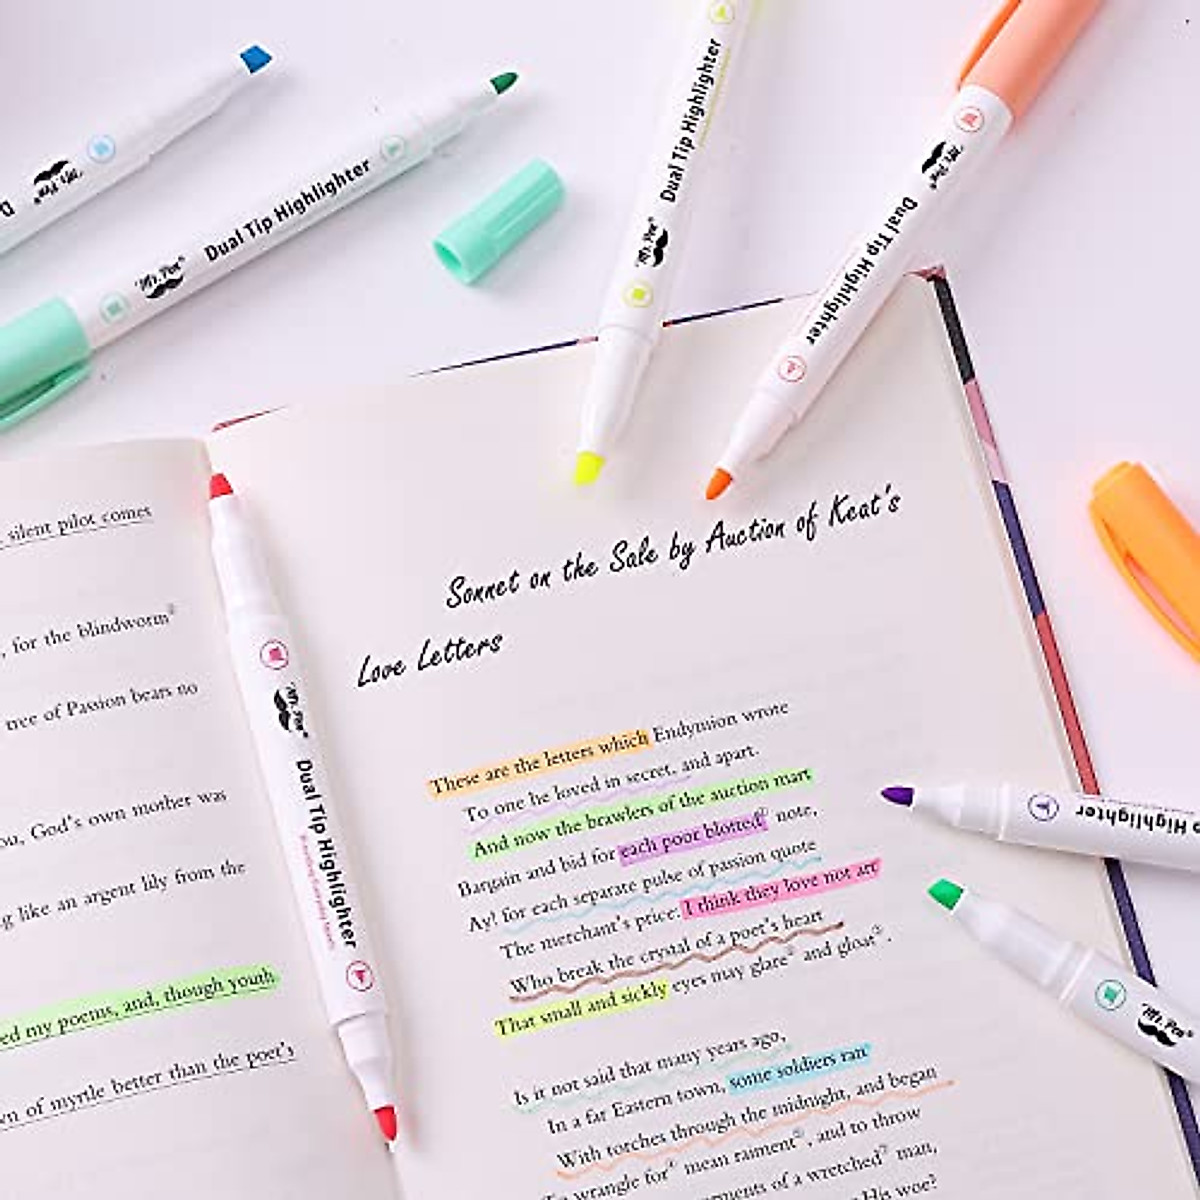 Mr. Pen
Dual Tip Highlighter
Mr. Pen
Dual Tip Highlighter
Mr. Pen
Dual Tip Highlighter
Mr. Pen
silent pilot comes
, for the blindworm②
tree of Passion bears no
ou, God's own mother was
g like an argent lily from the
ed my poems, and, though youth
wn of myrtle better than the poet's
Mr. Pen
Dual Tip Highlighter
Sonnet on the Sale by Auction of Keat's
Love Letters
These are the letters which Endymion wrote
To one he loved in secret, and apart.
And now the brawlers of the auction mart
Bargain and bid for each poor blotted① note,
Ay! for each separate pulse of passion quote
The merchant's price: I think they love not art
Who break the crystal of a poet's heart
That small and sickly eyes may glare② and gloat③.
Is it not said that many years ago,
In a far Eastern town, some soldiers ran
With torches through the midnight, and began
To wrangle for④ mean raiment⑤, and to throw
rments of a wretched⑥ man,
His woe?
p Highlighter
Mr. Pen